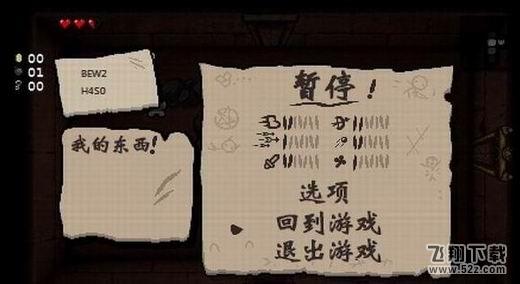 00
01
00
BEW2
H4S0
我的东西!
暂停!
选项
回到游戏
退出游戏
飞翔下载
www.522.com